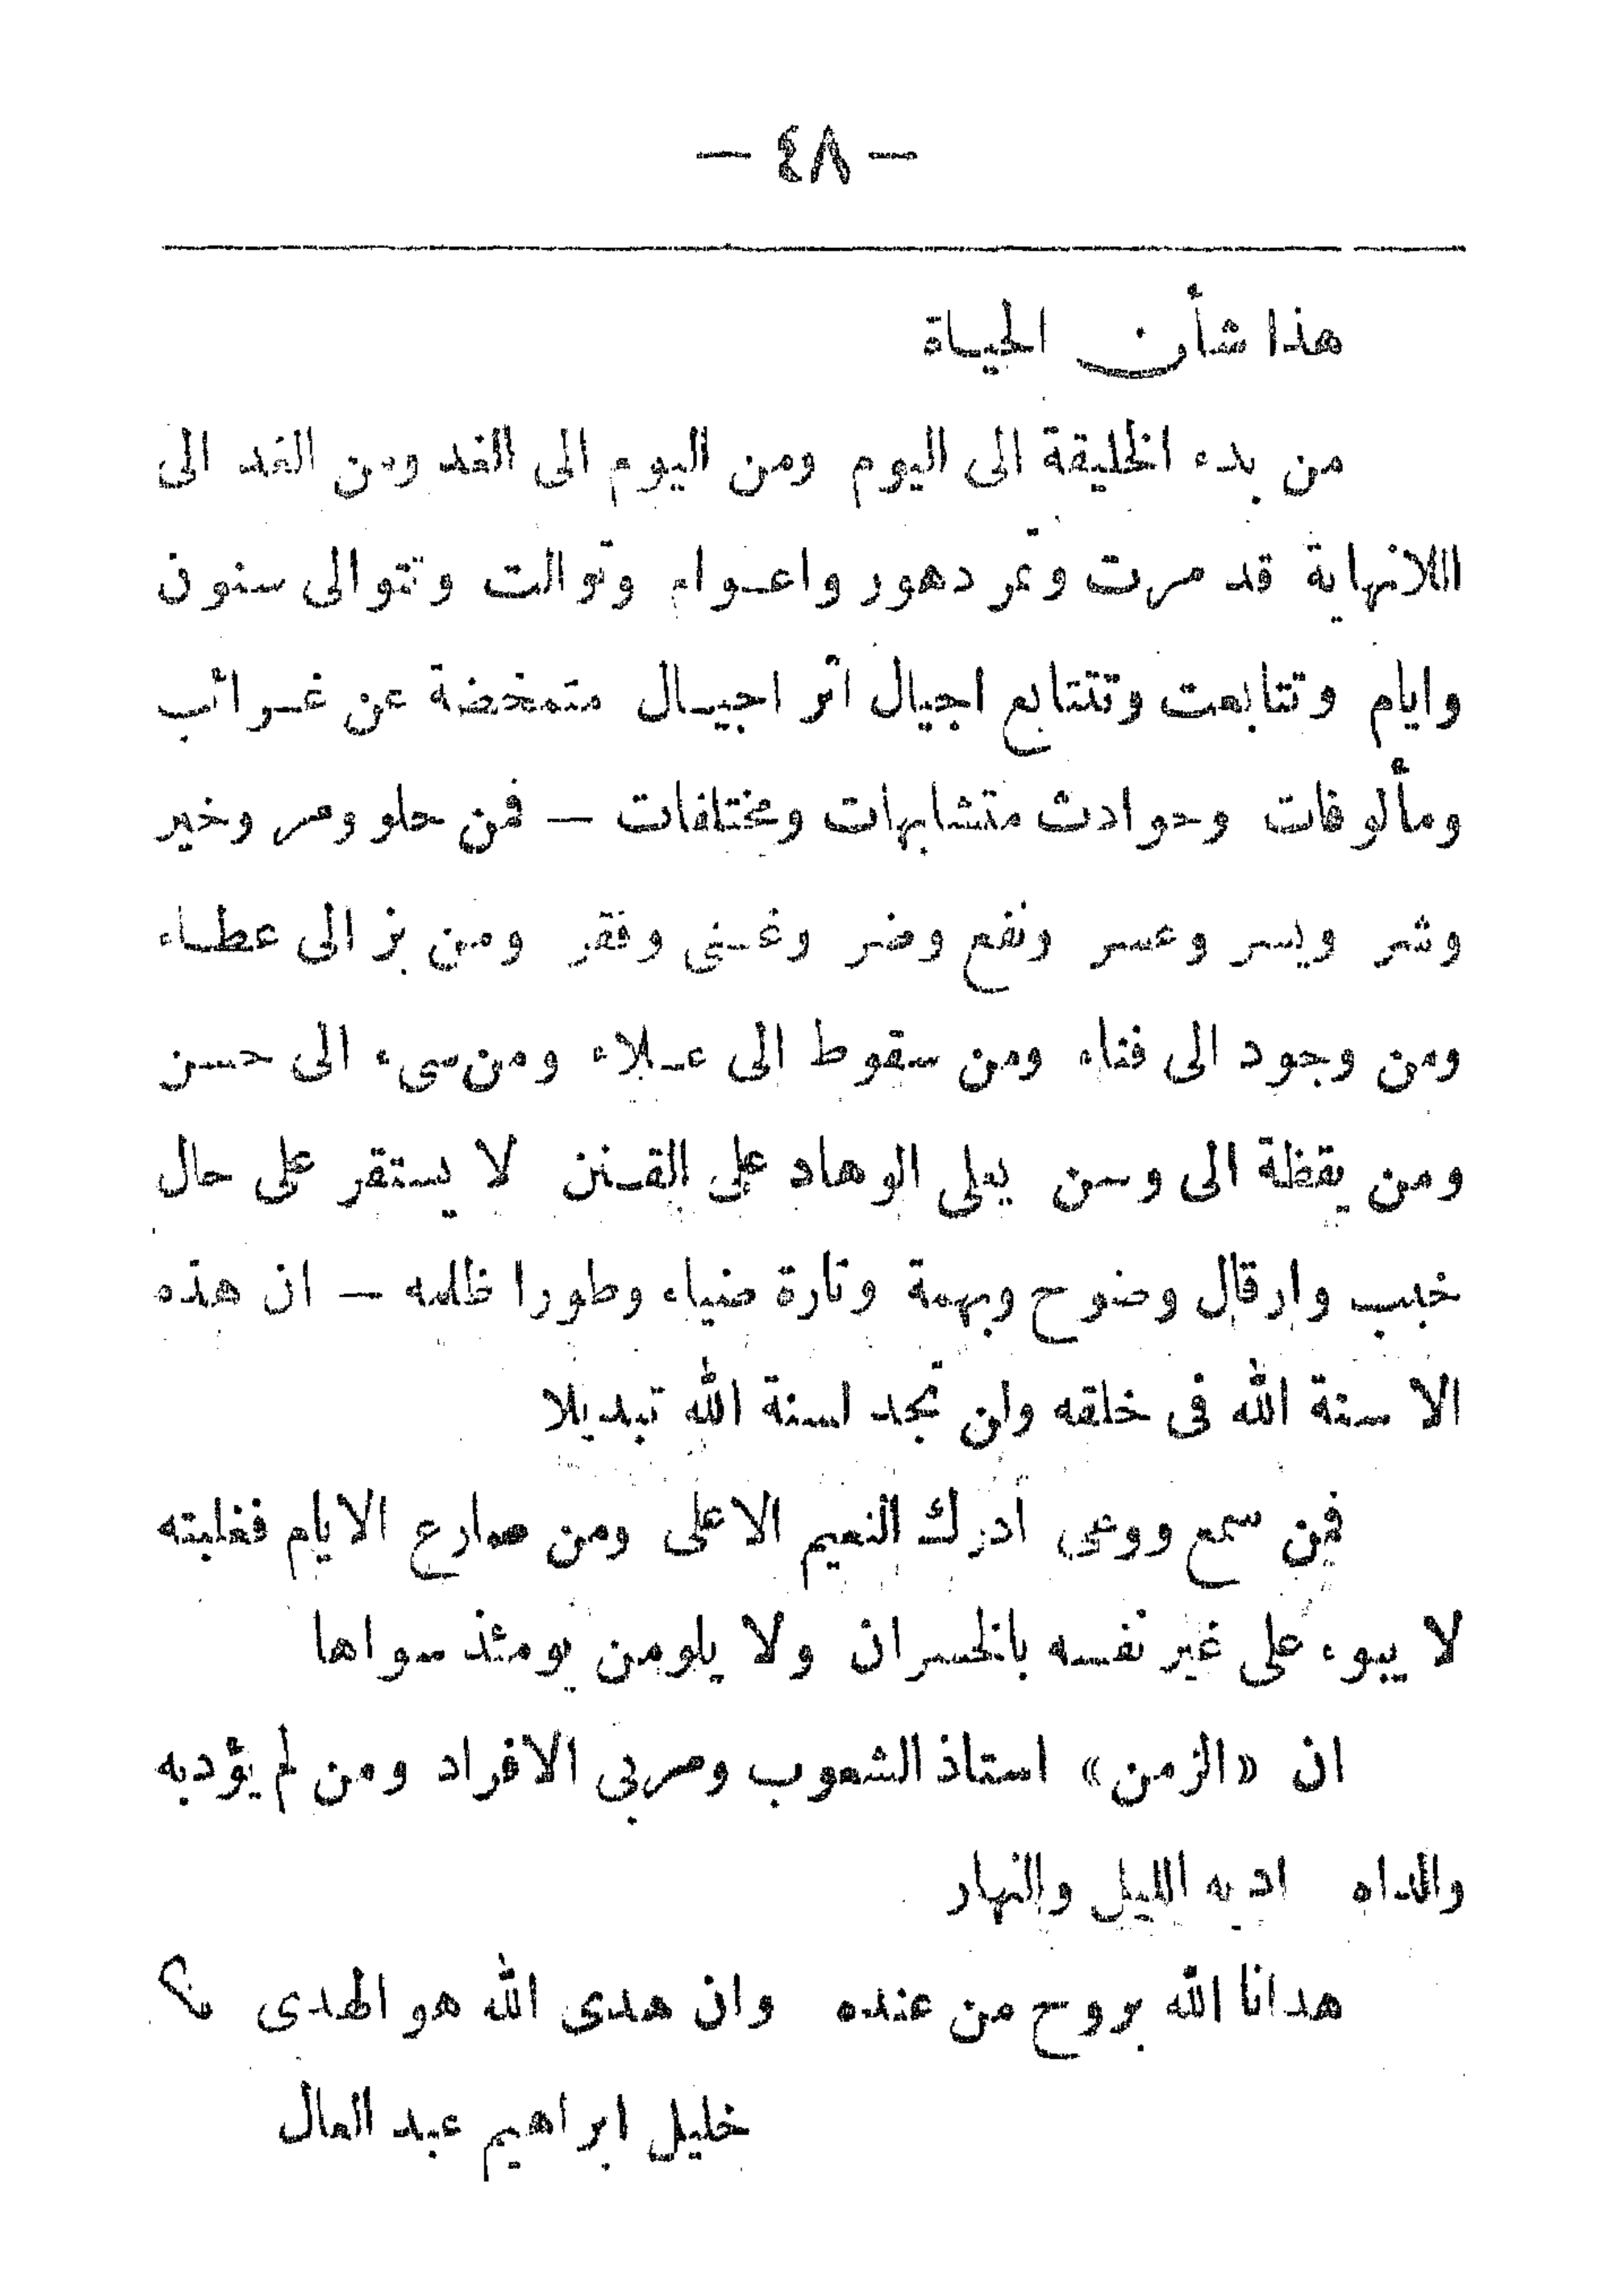 — ٤٨ —
هذا شأن الحياة
من بدء الخليقة الى اليوم ومن اليوم الى الغد ومن الغد الى
اللانهاية قد مرت وتمر دهور واعوام وتوالت وتتوالى سنون
وايام وتتابعت وتتتابع اجيال اثر اجيال متمخضة عن غرائب
ومألوفات وحوادث متشابهات ومختلفات — فمن حلو ومر وخير
وشر ويسر وعسر ونفع وضر وغنى وفقر ومن بز الى عطاء
ومن وجود الى فناء ومن سقوط الى علاء ومن سىء الى حسن
ومن يقظة الى وسن يعلى الوهاد على القنن لا يستقر على حال
خبب وارقال وضوح وبهمة وتارة ضياء وطورا ظلمه — ان هذه
الا سنة الله فى خلقه ولن تجد لسنة الله تبديلا
فمن سمع ووعى أدرك النعيم الاعلى ومن صارع الايام فغلبته
لا يبوء على غير نفسه بالخسران ولا يلومن يومئذ سواها
ان «الزمن» استاذ الشعوب ومربى الافراد ومن لم يؤدبه
والداه ادبه الليل والنهار
هدانا الله بروح من عنده وان هدى الله هو الهدى ؟
خليل ابراهيم عبد العال